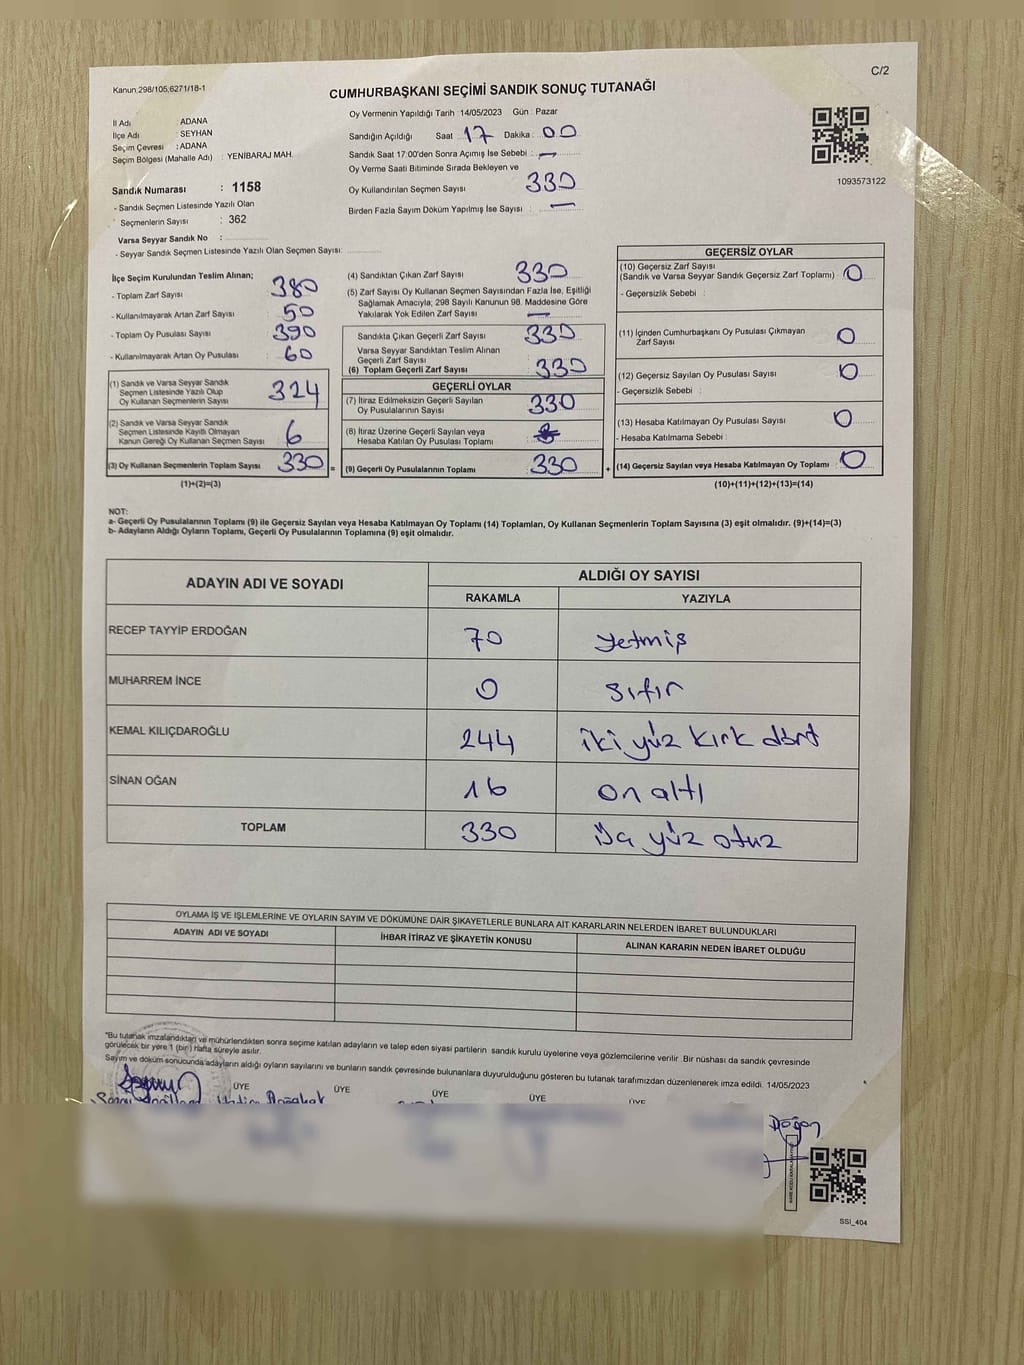 C/2
Kanun 298/105,6271/18-1
CUMHURBAŞKANI SEÇİMİ SANDIK SONUÇ TUTANAĞI
İl Adı : ADANA
İlçe Adı : SEYHAN
Seçim Çevresi : ADANA
Seçim Bölgesi (Mahalle Adı) : YENİBARAJ MAH.
Sandık Numarası : 1158
- Sandık Seçmen Listesinde Yazılı Olan
Seçmenlerin Sayısı : 362
Varsa Seyyar Sandık No :
- Seyyar Sandık Seçmen Listesinde Yazılı Olan Seçmen Sayısı:
Oy Vermenin Yapıldığı Tarih :14/05/2023 Gün : Pazar
Sandığın Açıldığı Saat 17 Dakika : 00
Sandık Saat 17:00'den Sonra Açımış İse Sebebi : —
Oy Verme Saati Bitiminde Sırada Bekleyen ve
Oy Kullandırılan Seçmen Sayısı 330
Birden Fazla Sayım Döküm Yapılmış İse Sayısı : —
1093573122
İlçe Seçim Kurulundan Teslim Alınan;
- Toplam Zarf Sayısı 380
- Kullanılmayarak Artan Zarf Sayısı : 50
- Toplam Oy Pusulası Sayısı : 390
- Kullanılmayarak Artan Oy Pusulası : 60
(1) Sandık ve Varsa Seyyar Sandık
Seçmen Listesinde Yazılı Olup
Oy Kullanan Seçmenlerin Sayısı 324
(2) Sandık ve Varsa Seyyar Sandık
Seçmen Listesinde Kayıtlı Olmayan
Kanun Gereği Oy Kullanan Seçmen Sayısı 6
(3) Oy Kullanan Seçmenlerin Toplam Sayısı 330 =
(1)+(2)=(3)
(4) Sandıktan Çıkan Zarf Sayısı 330
(5) Zarf Sayısı Oy Kullanan Seçmen Sayısından Fazla İse, Eşitliği
Sağlamak Amacıyla; 298 Sayılı Kanunun 98. Maddesine Göre
Yakılarak Yok Edilen Zarf Sayısı : —
Sandıkta Çıkan Geçerli Zarf Sayısı 330
Varsa Seyyar Sandıktan Teslim Alınan
Geçerli Zarf Sayısı
(6) Toplam Geçerli Zarf Sayısı 330
GEÇERLİ OYLAR
(7) İtiraz Edilmeksizin Geçerli Sayılan
Oy Pusulalarının Sayısı 330
(8) İtiraz Üzerine Geçerli Sayılan veya
Hesaba Katılan Oy Pusulası Toplamı
(9) Geçerli Oy Pusulalarının Toplamı : 330 +
GEÇERSİZ OYLAR
(10) Geçersiz Zarf Sayısı
(Sandık ve Varsa Seyyar Sandık Geçersiz Zarf Toplamı) : 0
- Geçersizlik Sebebi :
(11) İçinden Cumhurbaşkanı Oy Pusulası Çıkmayan
Zarf Sayısı 0
(12) Geçersiz Sayılan Oy Pusulası Sayısı : 0
- Geçersizlik Sebebi :
(13) Hesaba Katılmayan Oy Pusulası Sayısı : 0
- Hesaba Katılmama Sebebi :
(14) Geçersiz Sayılan veya Hesaba Katılmayan Oy Toplamı : 0
(10)+(11)+(12)+(13)=(14)
NOT:
a- Geçerli Oy Pusulalarının Toplamı (9) ile Geçersiz Sayılan veya Hesaba Katılmayan Oy Toplamı (14) Toplamları, Oy Kullanan Seçmenlerin Toplam Sayısına (3) eşit olmalıdır. (9)+(14)=(3)
b- Adayların Aldığı Oyların Toplamı, Geçerli Oy Pusulalarının Toplamına (9) eşit olmalıdır.
ADAYIN ADI VE SOYADI ALDIĞI OY SAYISI
RAKAMLA YAZIYLA
RECEP TAYYİP ERDOĞAN 70 yetmiş
MUHARREM İNCE 0 sıfır
KEMAL KILIÇDAROĞLU 244 iki yüz kırk dört
SİNAN OĞAN 16 on altı
TOPLAM 330 üç yüz otuz
OYLAMA İŞ VE İŞLEMLERİNE VE OYLARIN SAYIM VE DÖKÜMÜNE DAİR ŞİKAYETLERLE BUNLARA AİT KARARLARIN NELERDEN İBARET BULUNDUKLARI
ADAYIN ADI VE SOYADI İHBAR İTİRAZ VE ŞİKAYETİN KONUSU ALINAN KARARIN NEDEN İBARET OLDUĞU
*Bu tutanak imzalandıktan ve mühürlendikten sonra seçime katılan adayların ve talep eden siyasi partilerin sandık kurulu üyelerine veya gözlemcilerine verilir. Bir nüshası da sandık çevresinde
görülecek bir yere 1 (bir) hafta süreyle asılır.
Sayım ve döküm sonucunda adayların aldığı oyların sayılarını ve bunların sandık çevresinde bulunanlara duyurulduğunu gösteren bu tutanak tarafımızdan düzenlenerek imza edildi. 14/05/2023
ÜYE ÜYE ÜYE ÜYE ÜYE
Doğan
SSİ_404